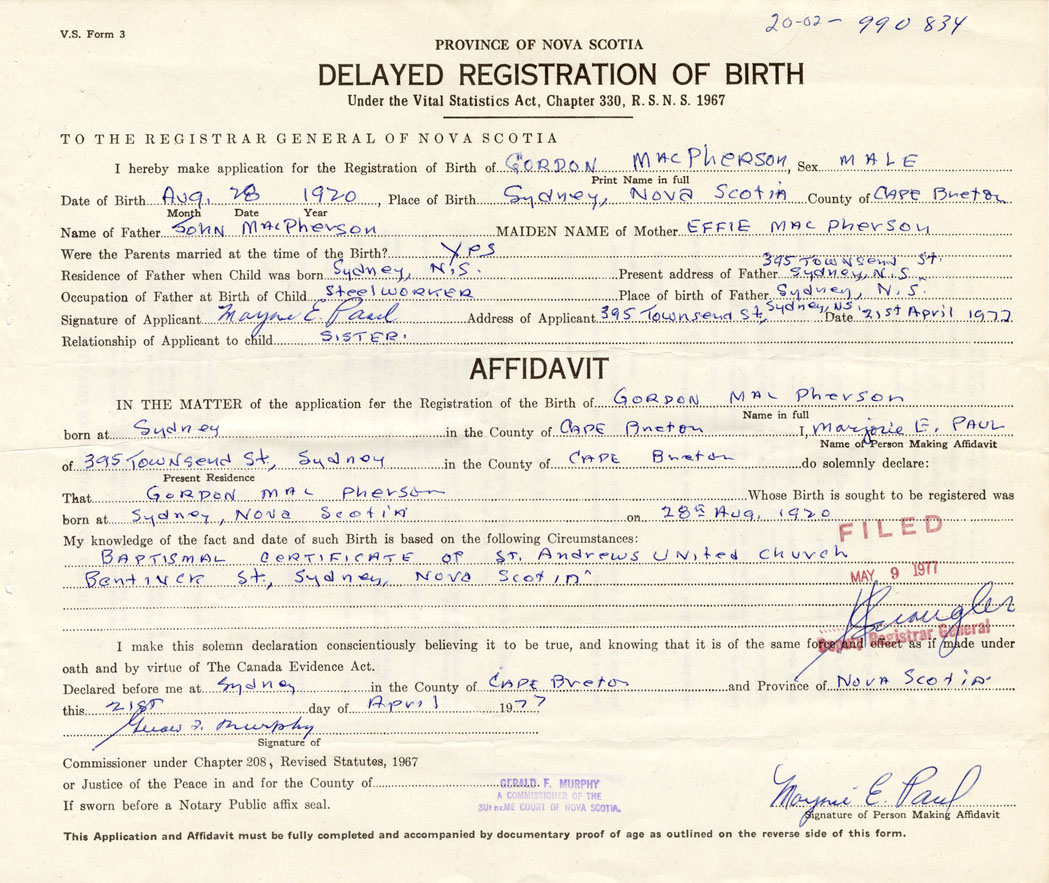 20-02- 990 834
V.S. Form 3
PROVINCE OF NOVA SCOTIA
DELAYED REGISTRATION OF BIRTH
Under the Vital Statistics Act, Chapter 330, R.S.N.S. 1967
TO THE REGISTRAR GENERAL OF NOVA SCOTIA
I hereby make application for the Registration of Birth of GORDON MACPHERSON, Sex MALE
Print Name in full
Date of Birth Aug. 28 1920, Place of Birth Sydney, Nova Scotia County of CAPE Breton
Month Date Year
Name of Father JOHN MACPherson MAIDEN NAME of Mother EFFIE MAC Pherson
Were the Parents married at the time of the Birth? Yes
395 Townsend St.
Residence of Father when Child was born Sydney, N.S. Present address of Father Sydney, N.S.
Occupation of Father at Birth of Child Steelworker Place of birth of Father Sydney, N.S.
Signature of Applicant Marjorie E. Paul Address of Applicant 395 Townsend St, Sydney, NS. Date 21st April 1977
Relationship of Applicant to child SISTER.
AFFIDAVIT
IN THE MATTER of the application for the Registration of the Birth of GORDON MAC Pherson
Name in full
born at Sydney in the County of CAPE Breton I, Marjorie E. PAUL
Name of Person Making Affidavit
of 395 Townsend St., Sydney in the County of CAPE Breton do solemnly declare:
Present Residence
That GORDON MAC Pherson Whose Birth is sought to be registered was
born at Sydney, Nova Scotia on 28th Aug. 1920
My knowledge of the fact and date of such Birth is based on the following Circumstances:
BAPTISMAL CERTIFICATE OF ST. Andrews United Church
Bentinck St., Sydney, Nova Scotia
FILED
MAY 9 1977
Deputy Registrar General
I make this solemn declaration conscientiously believing it to be true, and knowing that it is of the same force and effect as if made under
oath and by virtue of The Canada Evidence Act.
Declared before me at Sydney in the County of CAPE Breton and Province of Nova Scotia
this 21st day of April 1977
Gerald F. Murphy
Signature of
Commissioner under Chapter 208, Revised Statutes, 1967
or Justice of the Peace in and for the County of
If sworn before a Notary Public affix seal.
GERALD F. MURPHY
A COMMISSIONER OF THE
SUPREME COURT OF NOVA SCOTIA.
Marjorie E. Paul
Signature of Person Making Affidavit
This Application and Affidavit must be fully completed and accompanied by documentary proof of age as outlined on the reverse side of this form.